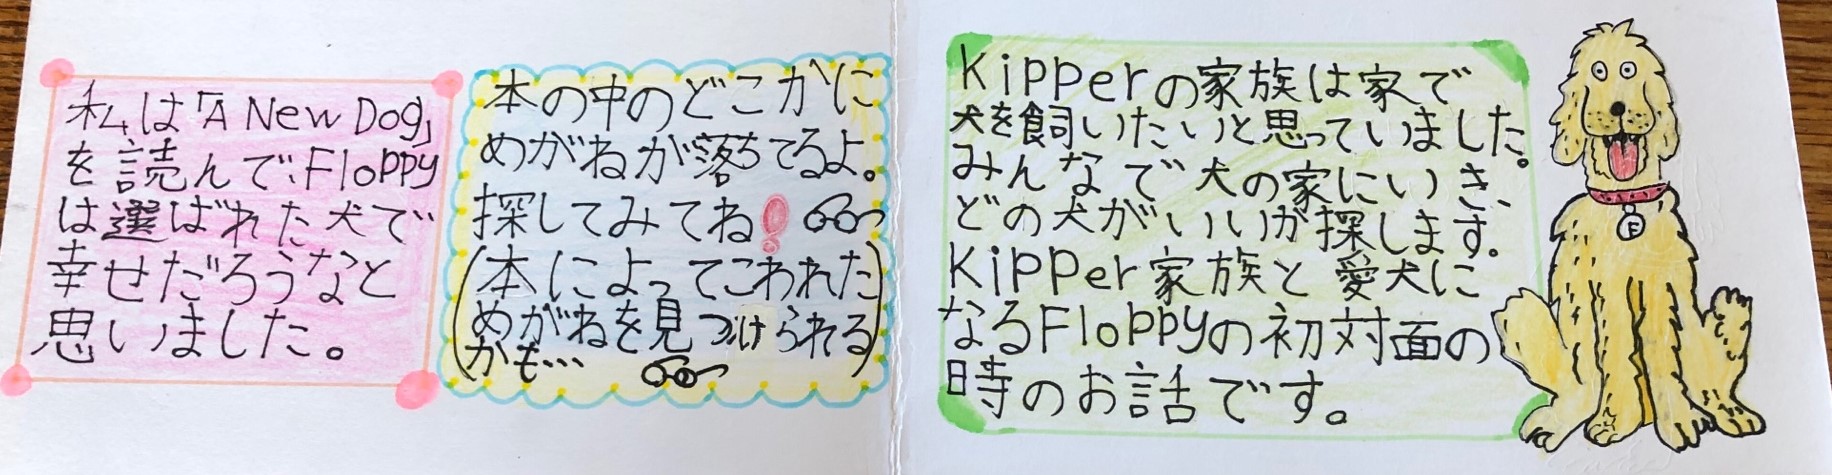 私は「A New Dog」
を読んで、Floppy
は選ばれた犬で
幸せだろうなと
思いました。
本の中のどこかに
めがねが落ちてるよ。
探してみてね!
(本によってこわれた
めがねを見つけられる
かも…)
Kipperの家族は家で
犬を飼いたいと思っていました。
みんなで犬の家にいき、
どの犬がいいか探します。
Kipper家族と愛犬に
なるFloppyの初対面の
時のお話です。
F